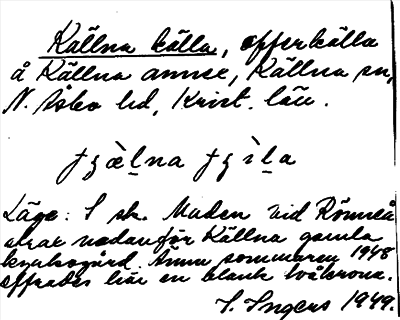 Källna källa, offerkälla
å Källna annex, Källna sn,
N. Åsbo hd, Krist. län.
Läge: I sk. Maden vid Rönneå
strax nedanför Källna gamla
kyrkogård. Ännu sommaren 1948
offrades här en blank tvåkrona.
I. Ingers 1949.